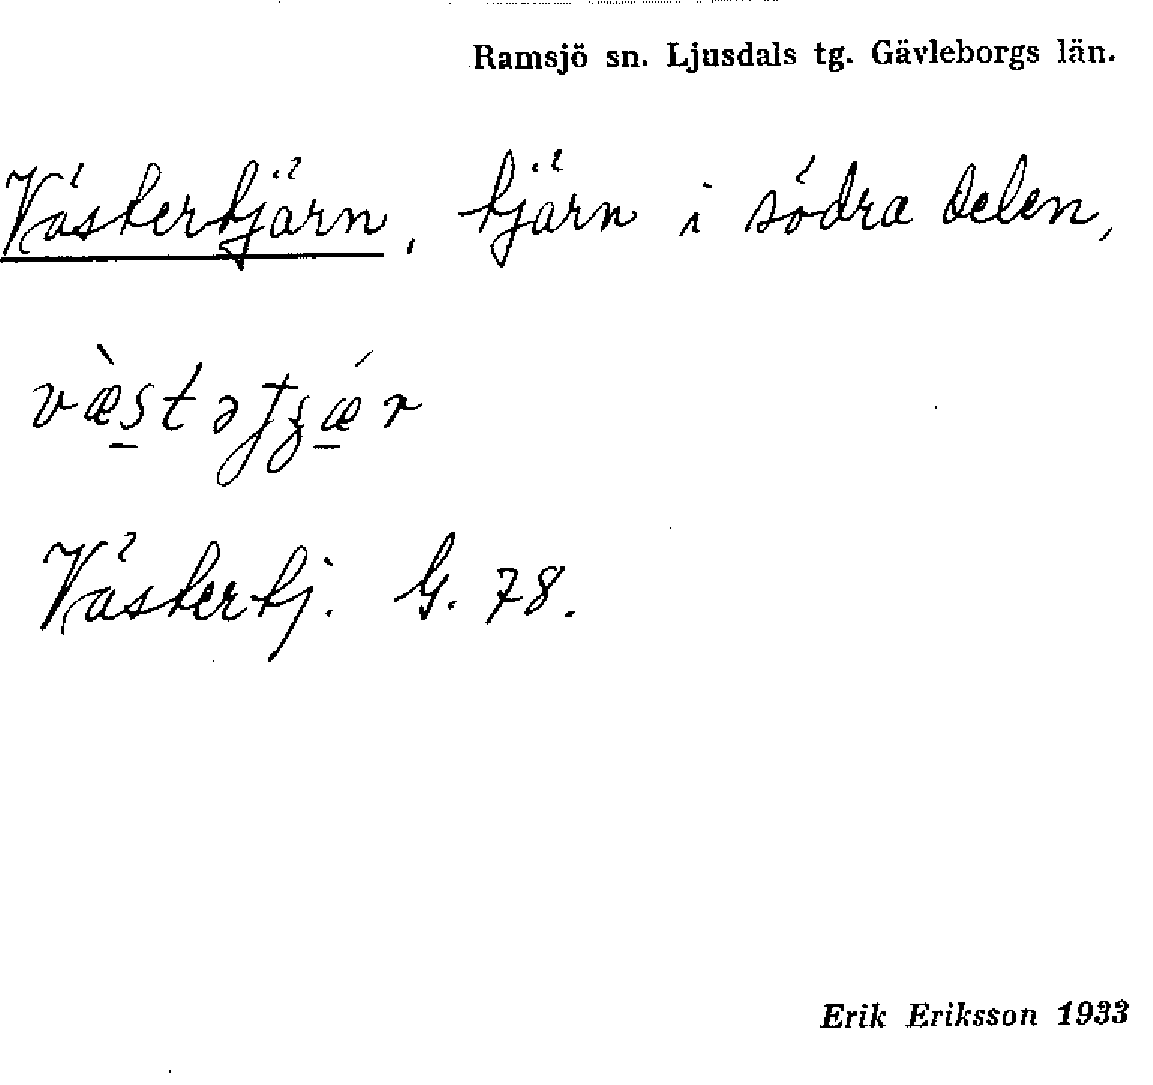 Ramsjö sn. Ljusdals tg. Gävleborgs län.
Västertjärn, tjärn i södra delen,
Västertj. G. 78.
Erik Eriksson 1933